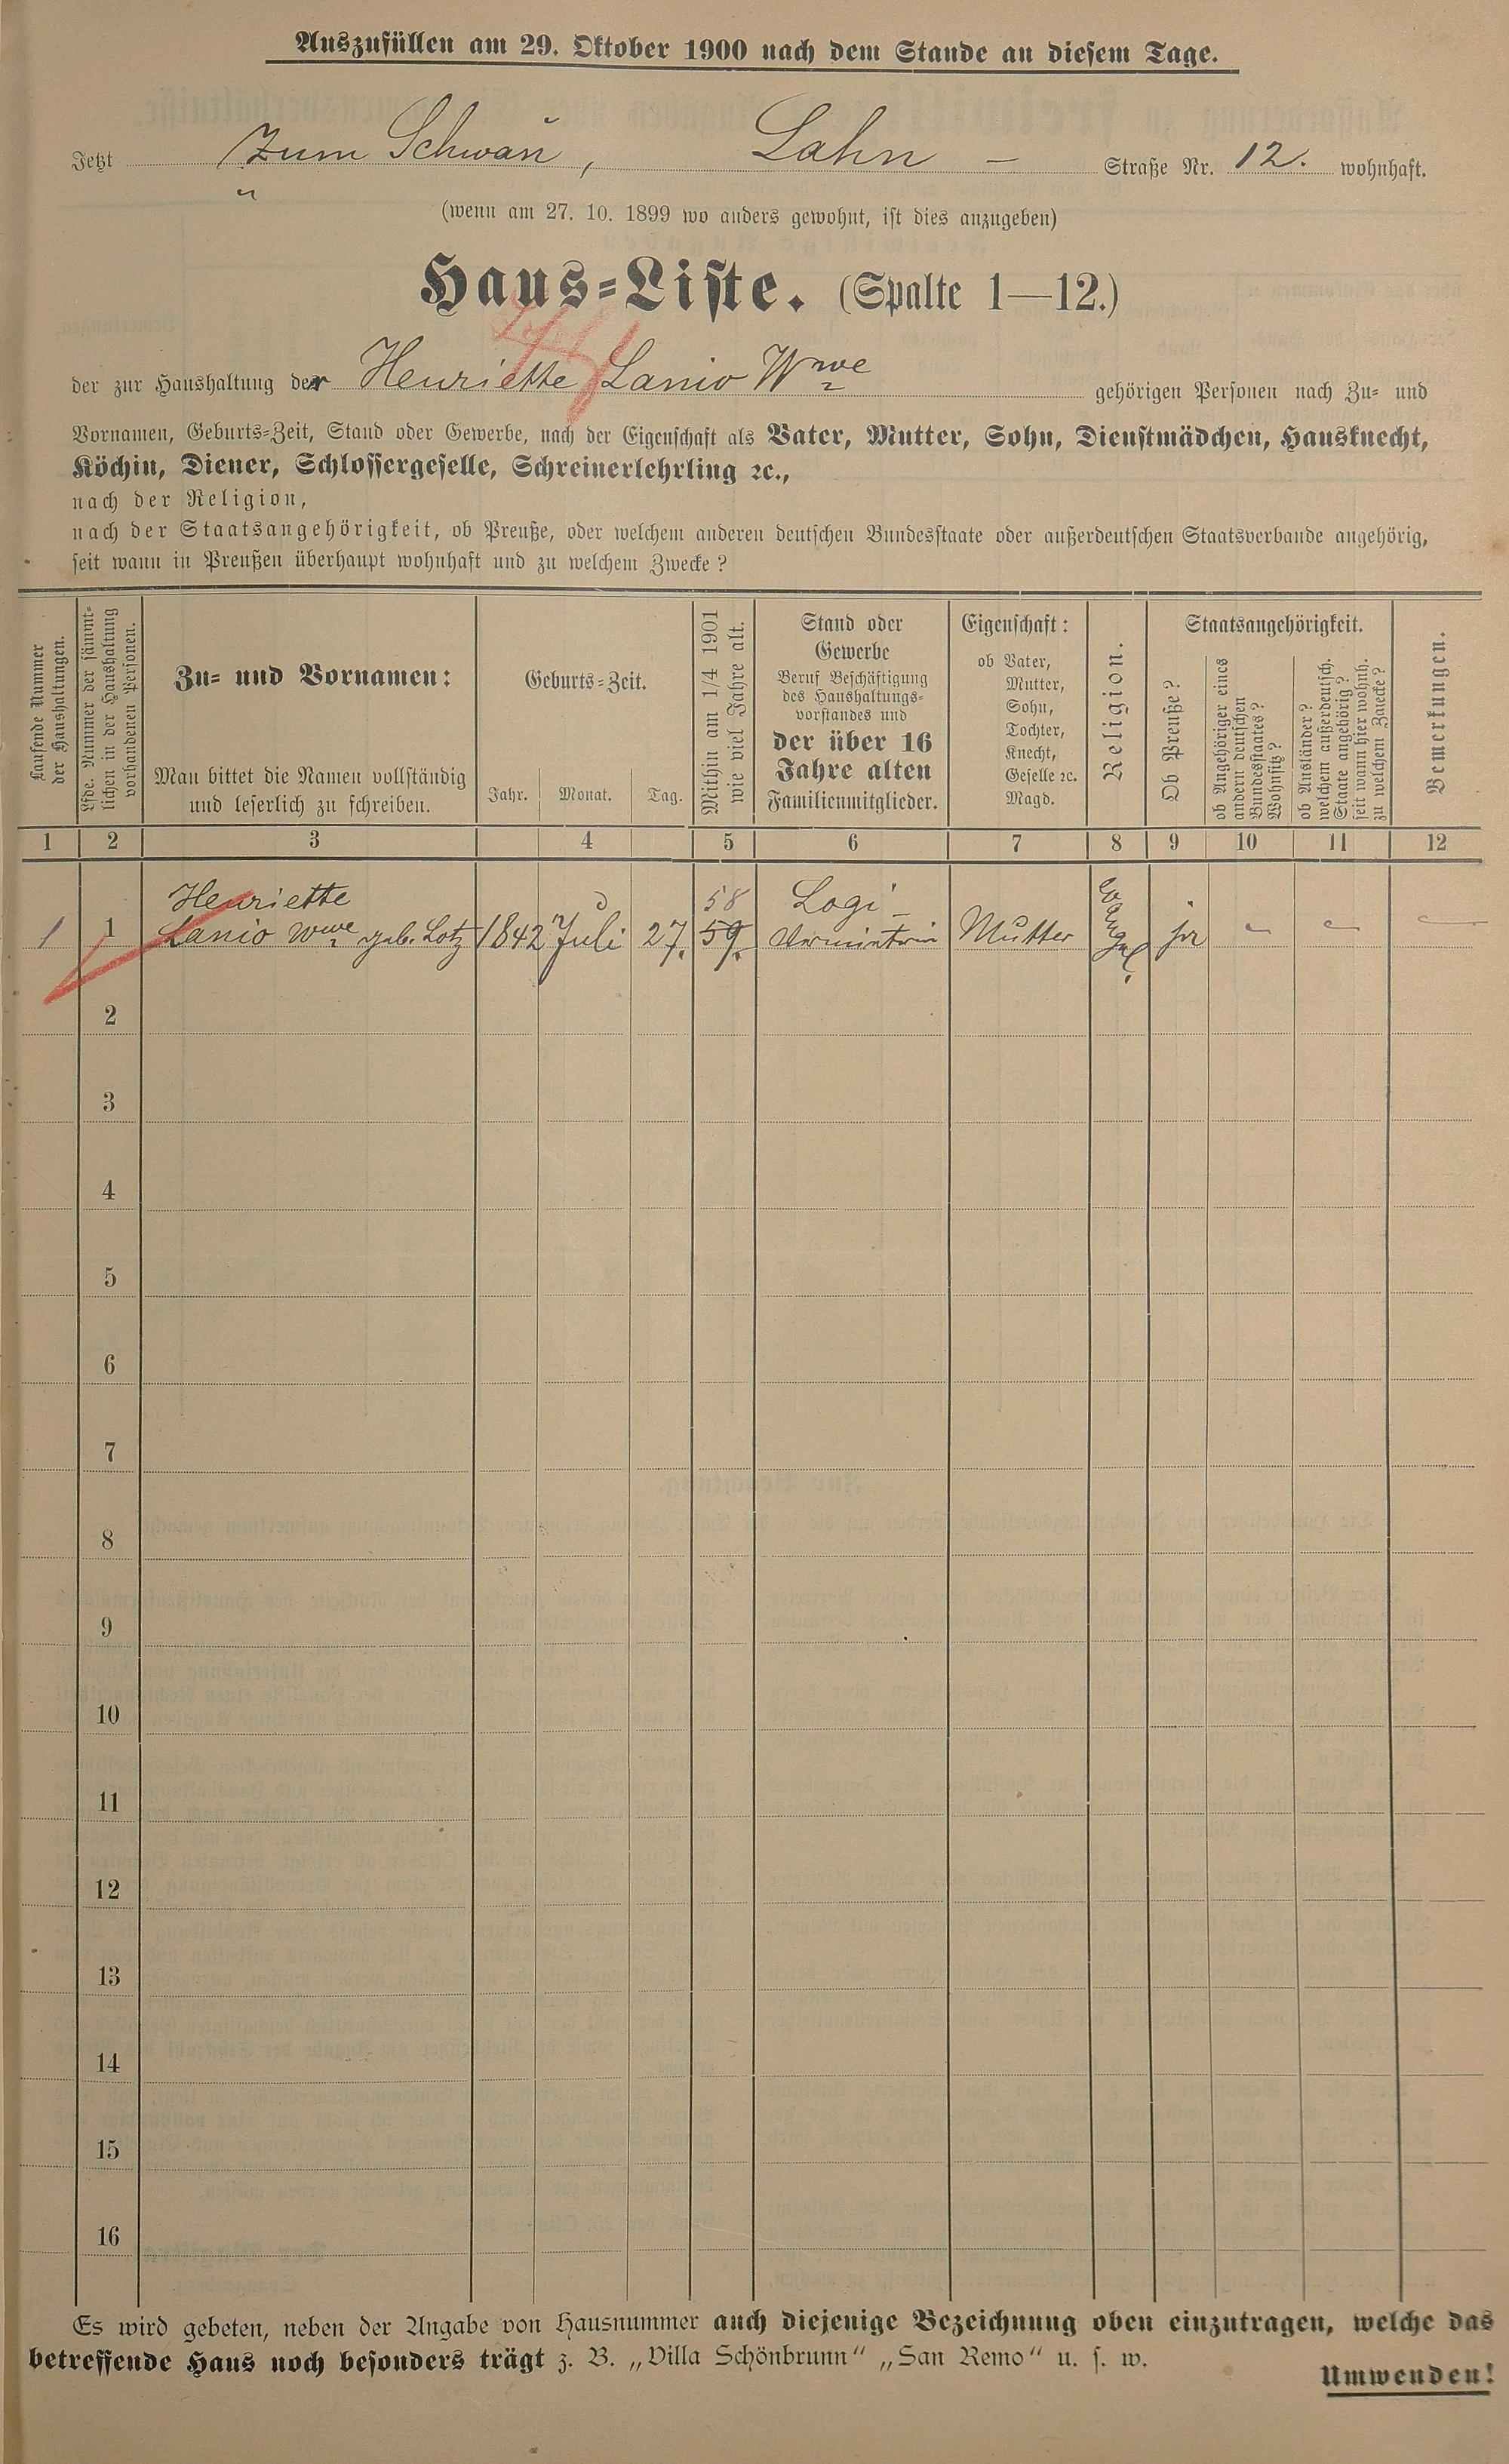 Auszufüllen am 29. Oktober 1900 nach dem Stande an diesem Tage.
Jetzt Zum Schwan, Lahn - Straße Nr. 12. wohnhaft.
(wenn am 27. 10. 1899 wo anders gewohnt, ist dies anzugeben)
Haus-Liste. (Spalte 1—12.)
der zur Haushaltung der Henriette Lanio Wwe gehörigen Personen nach Zu- und
Vornamen, Geburts-Zeit, Stand oder Gewerbe, nach der Eigenschaft als Vater, Mutter, Sohn, Dienstmädchen, Hausknecht,
Köchin, Diener, Schlossergeselle, Schreinerlehrling ꝛc.,
nach der Religion,
nach der Staatsangehörigkeit, ob Preuße, oder welchem anderen deutschen Bundesstaate oder außerdeutschen Staatsverbande angehörig,
seit wann in Preußen überhaupt wohnhaft und zu welchem Zwecke?
Laufende Nummer
der Haushaltungen.
Lfde. Nummer der sämmt-
lichen in der Haushaltung
vorhandenen Personen.
Zu- und Vornamen:
Man bittet die Namen vollständig
und leserlich zu schreiben.
Geburts-Zeit.
Jahr. Monat. Tag.
Mithin am 1/4 1901
wie viel Jahre alt.
Stand oder
Gewerbe
Beruf Beschäftigung
des Haushaltungs-
vorstandes und
der über 16
Jahre alten
Familienmitglieder.
Eigenschaft:
ob Vater,
Mutter,
Sohn,
Tochter,
Knecht,
Geselle ꝛc.
Magd.
Religion.
Staatsangehörigkeit.
Ob Preuße?
ob Angehöriger eines
andern deutschen
Bundesstaates?
Wohnsitz?
ob Ausländer?
welchem außerdeutsch.
Staate angehörig?
seit wann hier wohnh.
zu welchem Zwecke?
Bemerkungen.
1 2 3 4 5 6 7 8 9 10 11 12
Henriette 58 Logi-
1 1 Lanio Wwe geb. Lotz 1842 Juli 27. 59. Vermietrin Mutter Evangel. ja - - -
2
3
4
5
6
7
8
9
10
11
12
13
14
15
16
Es wird gebeten, neben der Angabe von Hausnummer auch diejenige Bezeichnung oben einzutragen, welche das
betreffende Haus noch besonders trägt z. B. „Villa Schönbrunn“ „San Remo“ u. s. w.
Umwenden!